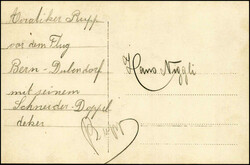 Aviatiker Rupp
vor dem Flug
Bern-Dübendorf
mit seinem
Schneider-Doppel
deker
Hans Niggli